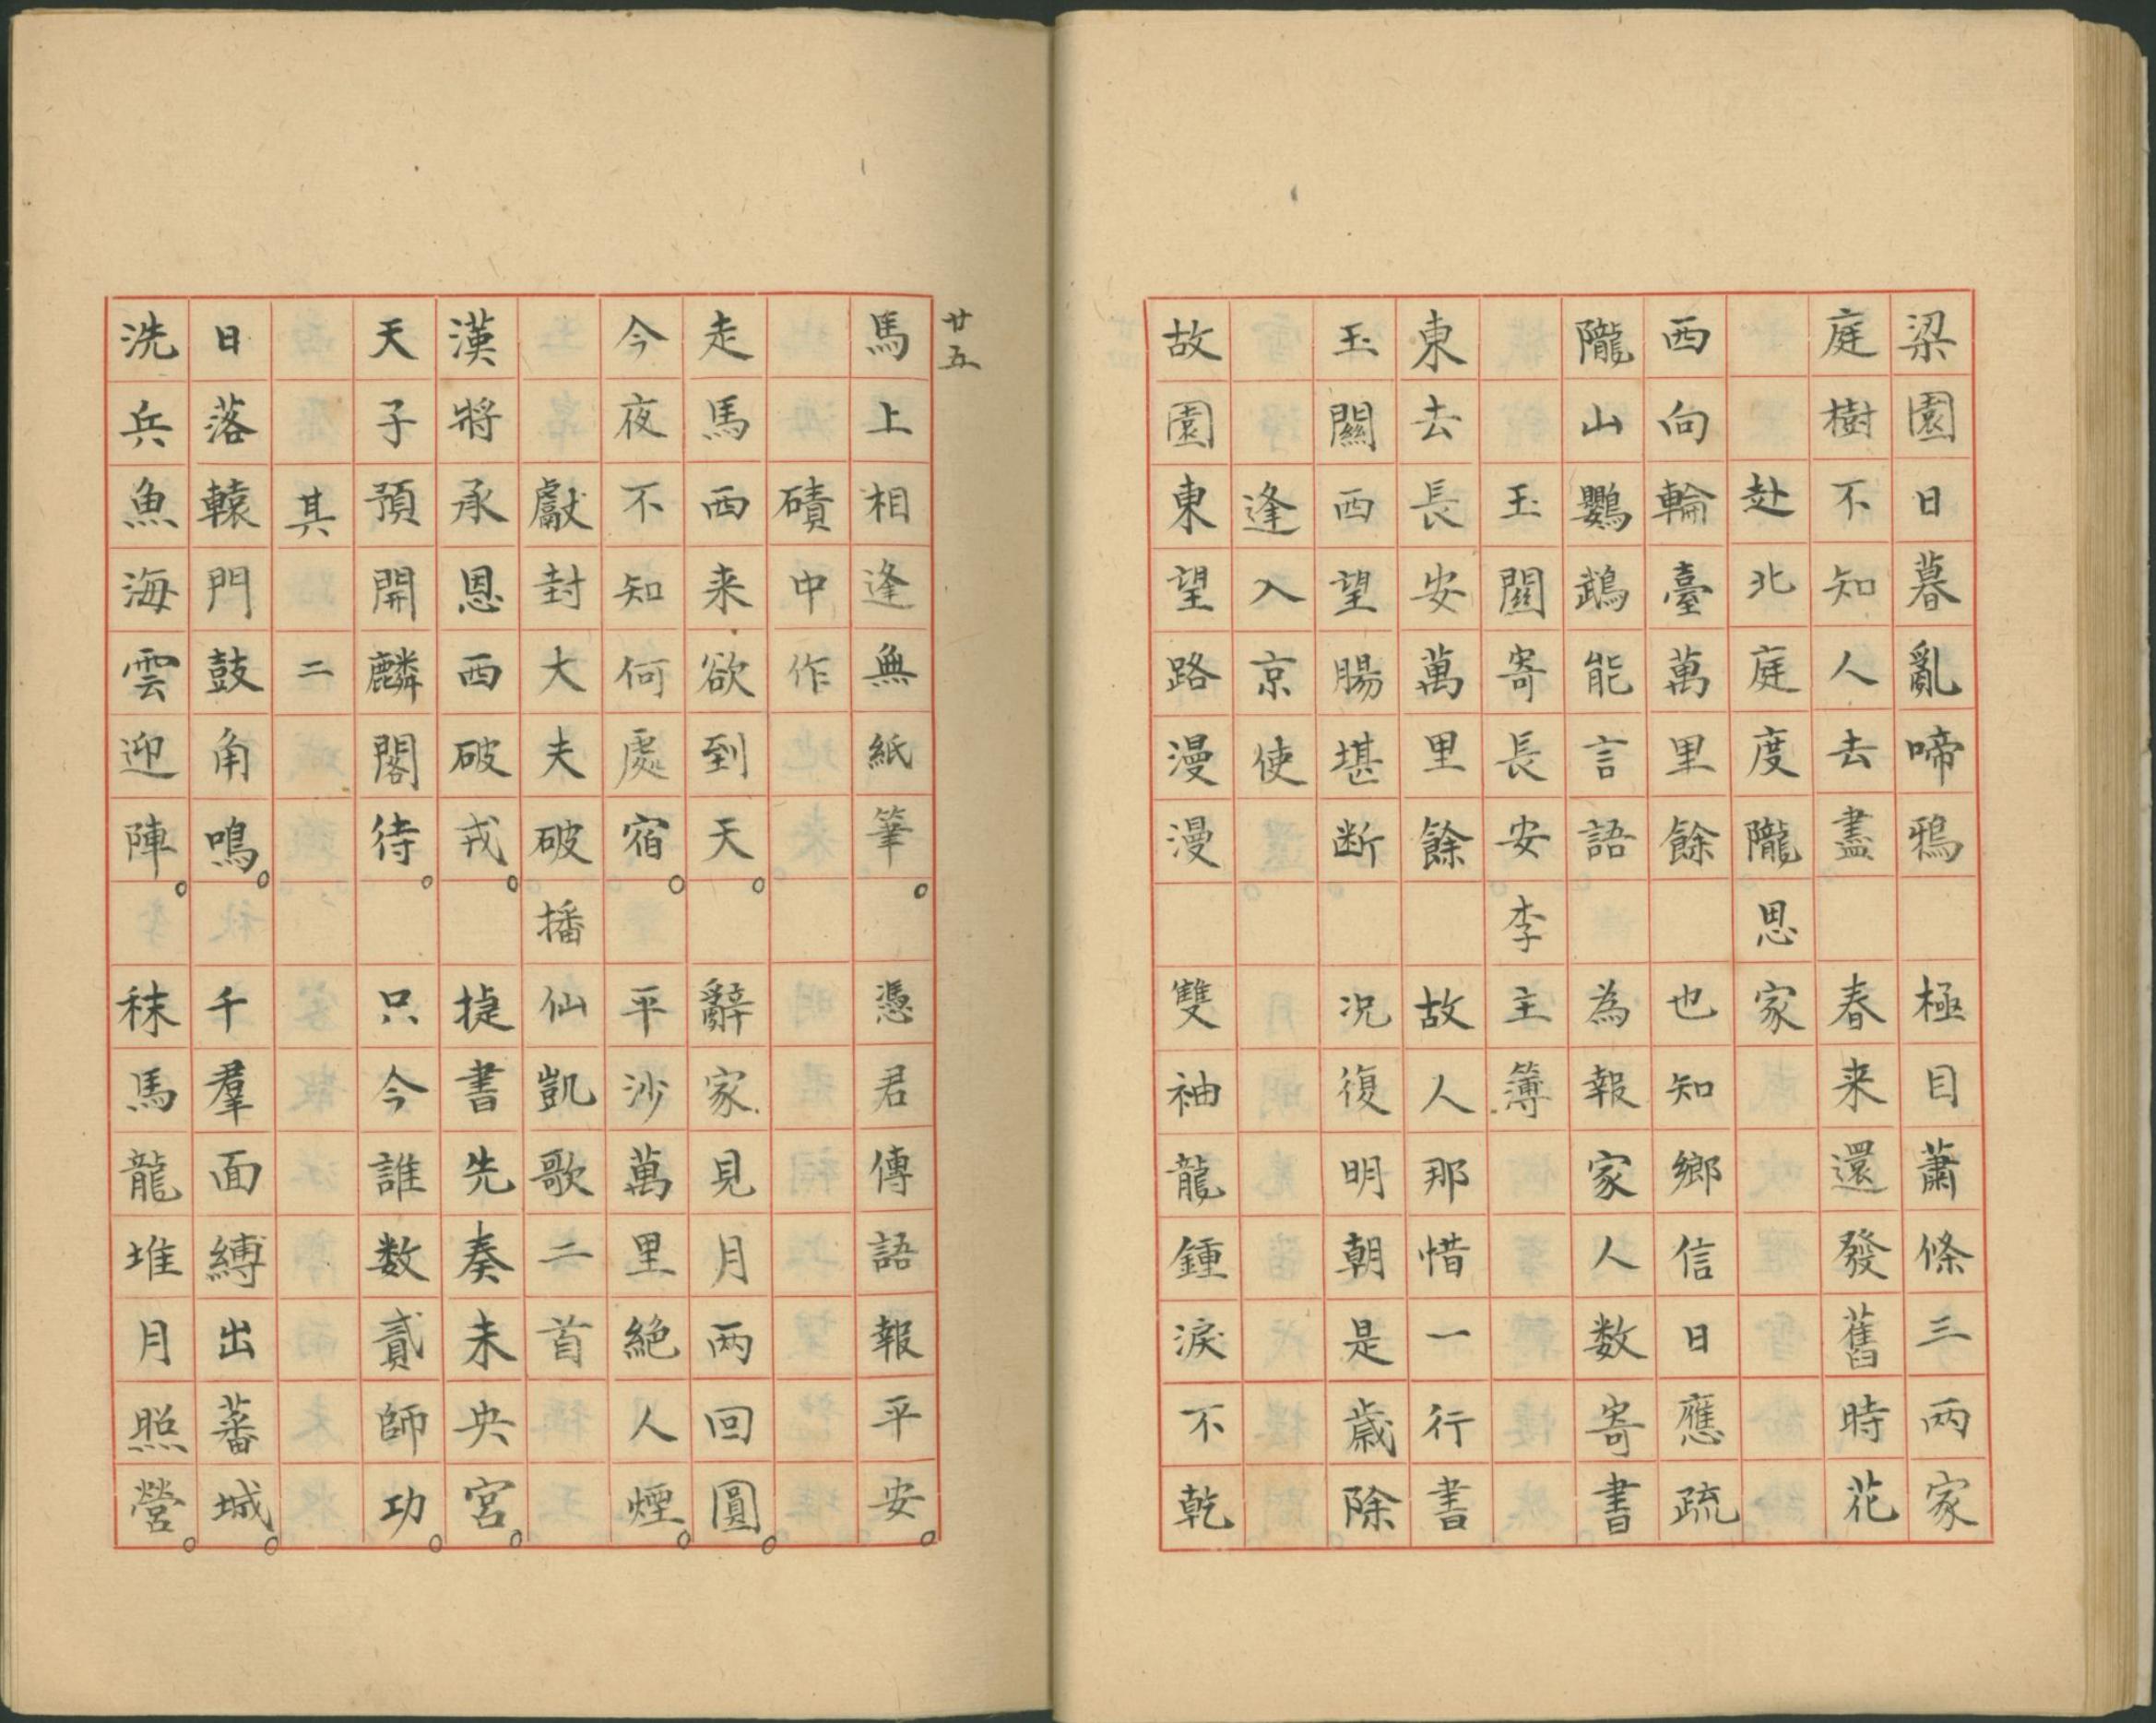 梁園日暮亂啼鴉　極目蕭條三兩家
庭樹不知人去盡　春来還發舊時花
赴北庭度隴思家
西向輪臺萬里餘　也知鄉信日應疏
隴山鸚鵡能言語　為報家人数寄書
玉關寄長安李主簿
東去長安萬里餘　故人那惜一行書
玉關西望腸堪断　况復明朝是歳除
逢入京使
故園東望路漫漫　雙袖龍鍾淚不乾
廿五
馬上相逢無紙筆。憑君傳語報平安。
磧中作
走馬西来欲到天。辭家見月兩回圓。
今夜不知何處宿。平沙萬里絶人煙。
獻封大夫破播仙凱歌二首
漢將承恩西破戎。捷書先奏未央宮。
天子預開麟閣待。只今誰数貳師功。
其二
日落轅門鼓角鳴。千羣面縛出蕃城。
洗兵魚海雲迎陣。秣馬龍堆月照營。